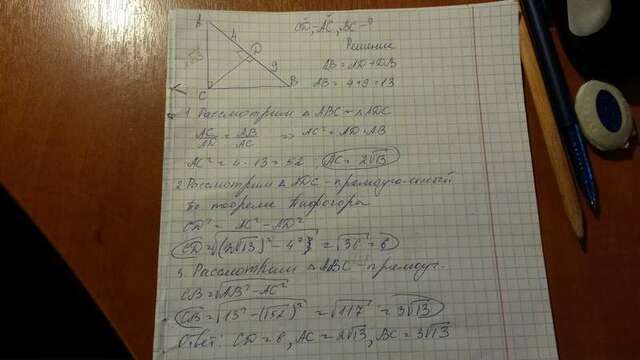 CD, AC, BC - ?
Решение
AB = AD + DB
AB = 4 + 9 = 13
A
4
D
9
B
C
1 Рассмотрим △ ABC ~ △ ADC
AC/AD = AB/AC => AC² = AD · AB
AC² = 4 · 13 = 52 AC = 2√13
2. Рассмотрим △ ADC - прямоугольный
По теореме Пифагора
CD² = AC² - AD²
CD = √(2√13)² - 4² = √36 = 6
3. Рассмотрим △ ABC - прямоуг.
CB = √AB² - AC²
CB = √13² - (√52)² = √117 = 3√13
Ответ: CD = 6, AC = 2√13, BC = 3√13